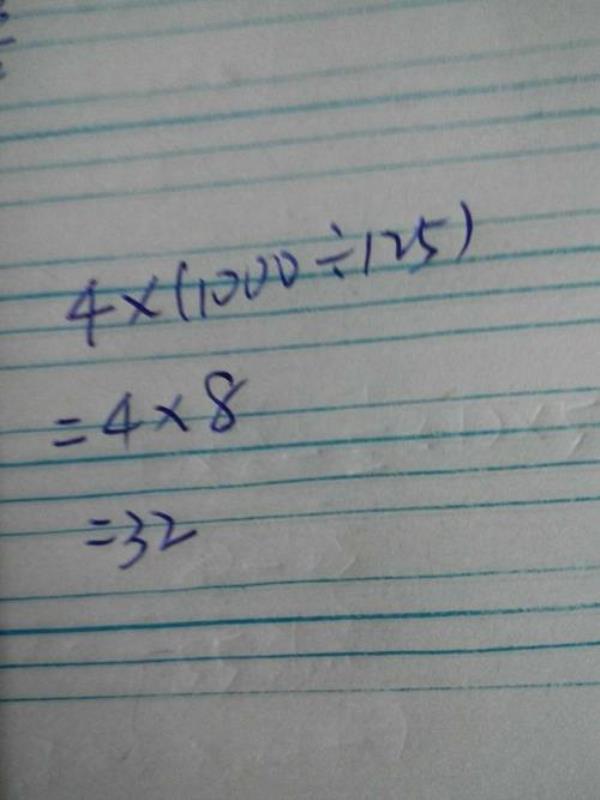 4×(1000÷125)
=4×8
=32